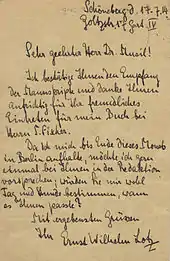 Schöneberg d. 17.7.14
Goltzstr. 15 Grt IV
Sehr geehrter Herr Dr. Musil!
Ich bestätige Ihnen den Empfang
des Manuskripts und danke Ihnen
für Ihr freundliches
Eintreten für mein Buch bei
Herrn S. Fischer.
Da ich mich bis Ende dieses Monats
in Berlin aufhalte, möchte ich gern
einmal bei Ihnen in der Redaktion
vorsprechen; würden Sie mir wohl
Tag und Stunde bestimmen, wann
es Ihnen passt?
Mit ergebensten Grüssen
Ihr
Ernst Wilhelm Lotz